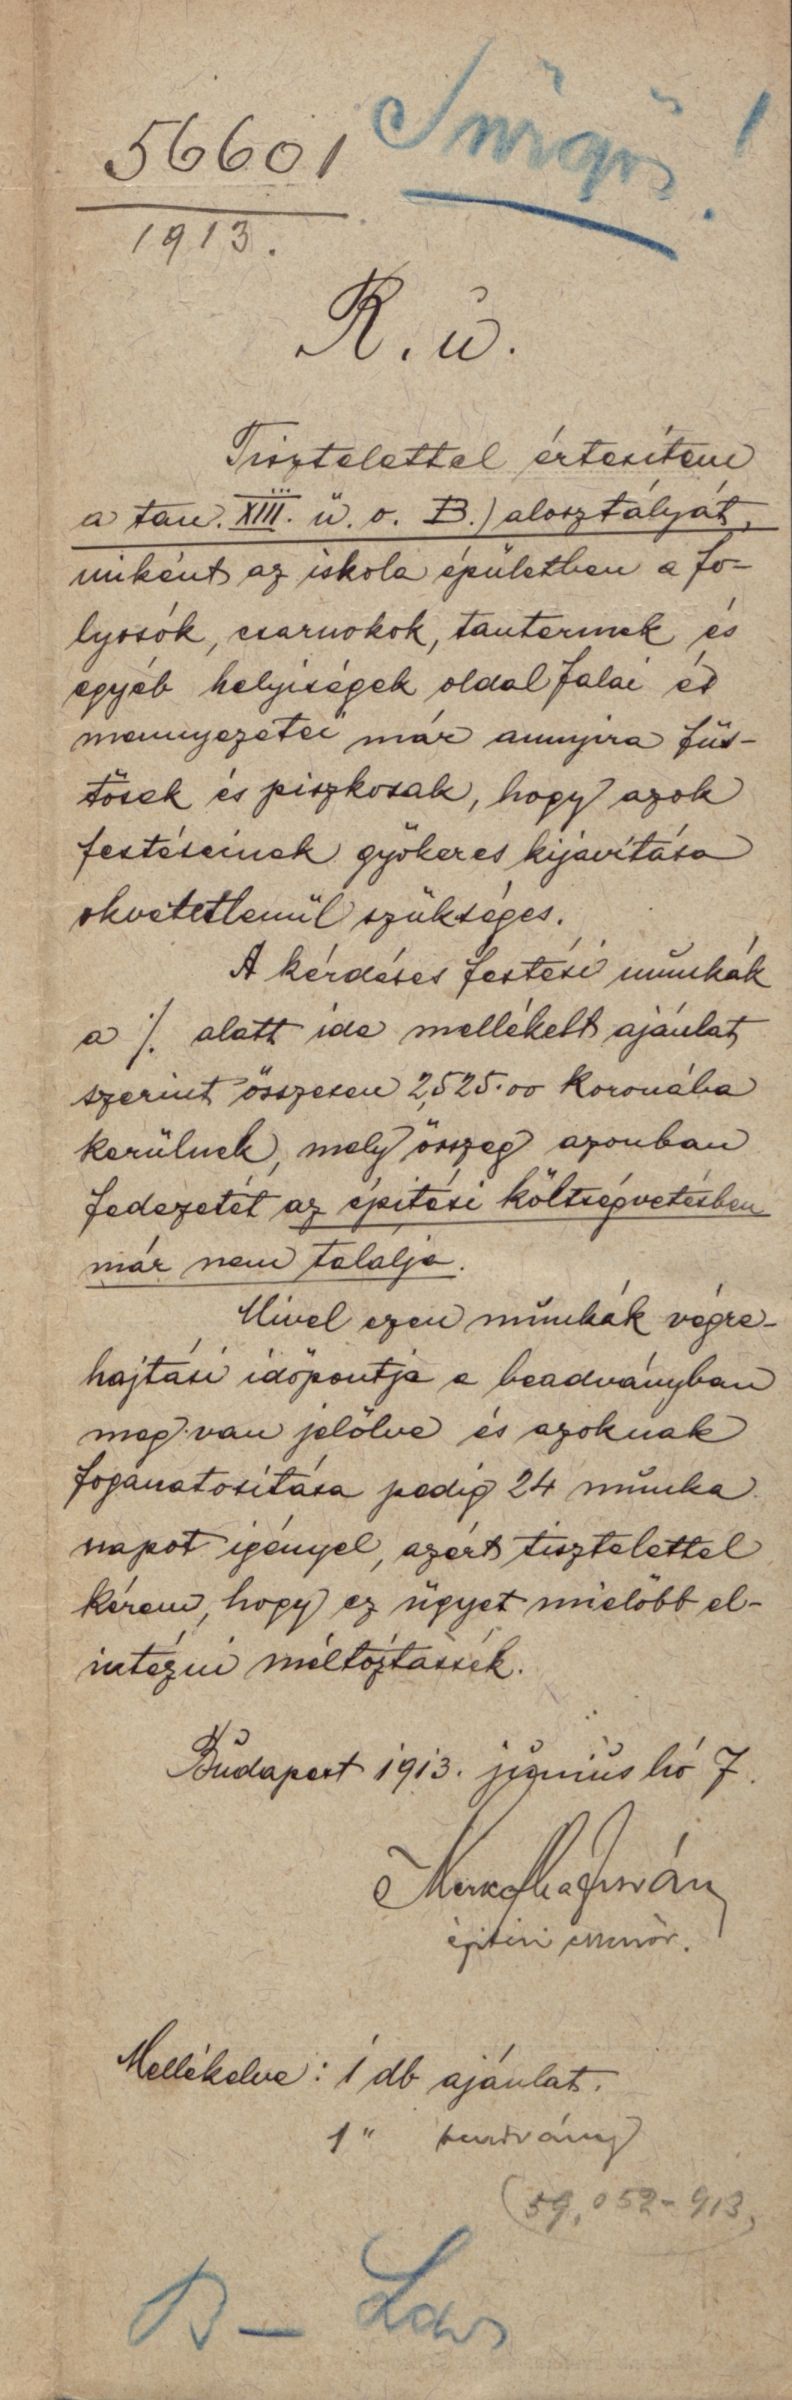 56601
1913.
Sürgős!
R. ü.
Tisztelettel értesítem
a tan. XIII. ü. o. B.) alosztályát,
miként az iskola épületben a fo-
lyosók, csarnokok, tantermek és
egyéb helyiségek oldalfalai és
mennyezetei már annyira füs-
tösek és piszkosak, hogy azok
festéseinek gyökeres kijavítása
okvetetlenül szükséges.
A kérdéses festési munkák
a ./. alatt ide mellékelt ajánlat
szerint összesen 2525.00 koronába
kerülnek, mely összeg azonban
fedezetét az építési költségvetésben
már nem találja.
Mivel ezen munkák végre-
hajtási időpontja a beadványban
meg van jelölve és azoknak
foganatosítása pedig 24 munka
napot igényel, azért tisztelettel
kérem, hogy ez ügyet mielőbb el-
intézni méltóztassék.
Budapest 1913. június hó 7.
István
építési
Mellékelve: 1 db ajánlat.
1 "
(59,052-913,
B —